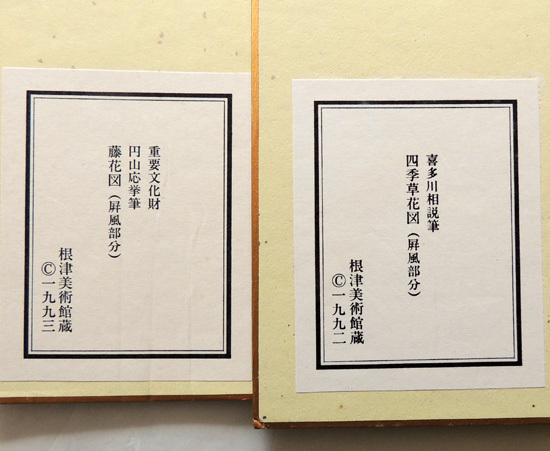 重要文化財
円山応挙筆
藤花図（屛風部分）
根津美術館蔵
Ⓒ一九九三
喜多川相説筆
四季草花図（屛風部分）
根津美術館蔵
Ⓒ一九九二